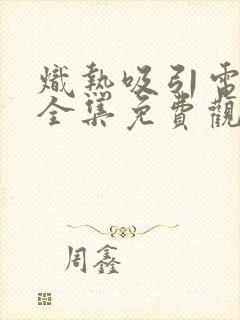 熾熱吸引電
全集免費觀
周鑫